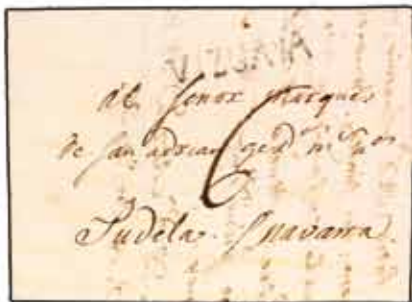 VIZCAYA
Al Señor Marques
de San Adrian, gẽd m.s a.s
6
Tudela. Navarra.